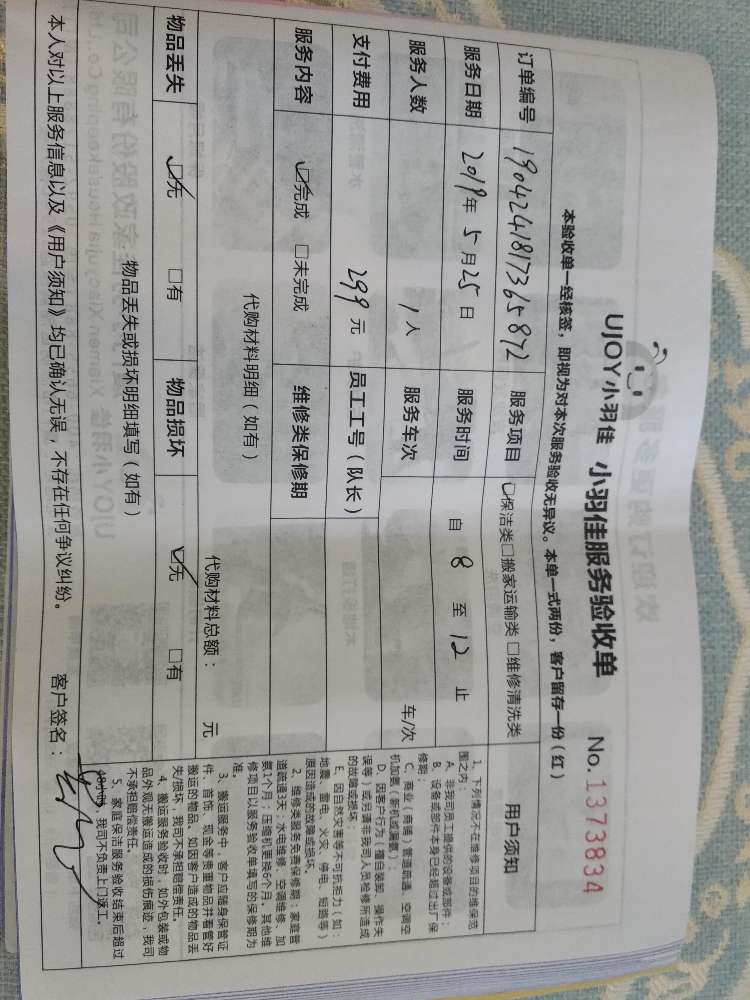 UJOY小羽佳 小羽佳服务验收单 No.1373834
本验收单一经核签，即视为对本次服务验收无异议。本单一式两份，客户留存一份（红）
订单编号 1904241817365872 服务项目 ☑保洁类□搬家运输类 □维修清洗类
服务日期 2019年5月25日 服务时间 自 8 至 12 止
服务人数 1人 服务车次 车/次
支付费用 299元 员工工号（队长）
服务内容 ☑完成 □未完成 维修类保修期
代购材料明细（如有）
代购材料总额： 元
物品丢失 ☑无 □有 物品损坏 ☑无 □有
物品丢失或损坏明细填写（如有）
用户须知
1、下列情况不在维修项目的维保范
围之内：
A、非我司员工提供的设备或部件；
B、设备或部件本身已经超过出厂保
修期；
C、商业（商铺）管道疏通、空调空
机加氨（新机或漏氨）；
D、因客户行为（擅自装卸、操作失
误等）或另请非我司人员检修所造成
的故障或损坏；
E、因自然灾害等不可抗拒力（如：
地震、雷电、火灾、停电、短路等）
原因造成的故障或损坏。
2、维修类服务免费保修期：家庭管
道疏通3天，水电维修、空调维修、加
氨1个月；压缩机更换6个月。其他维
修项目以服务验收单填写的保修期为
准。
3、搬运服务中，客户应随身保管证
件、首饰、现金等贵重物品并看管好
搬运的物品。如因客户造成的物品丢
失/损坏，我司不承担赔偿责任。
4、搬运服务验收时，如外包装或物
品外观无搬运造成的损伤痕迹，我司
不承担赔偿责任。
5、家庭保洁服务验收结束后超过
48小时，我司不负责上门返工。
本人对以上服务信息以及《用户须知》均已确认无误，不存在任何争议纠纷。 客户签名：